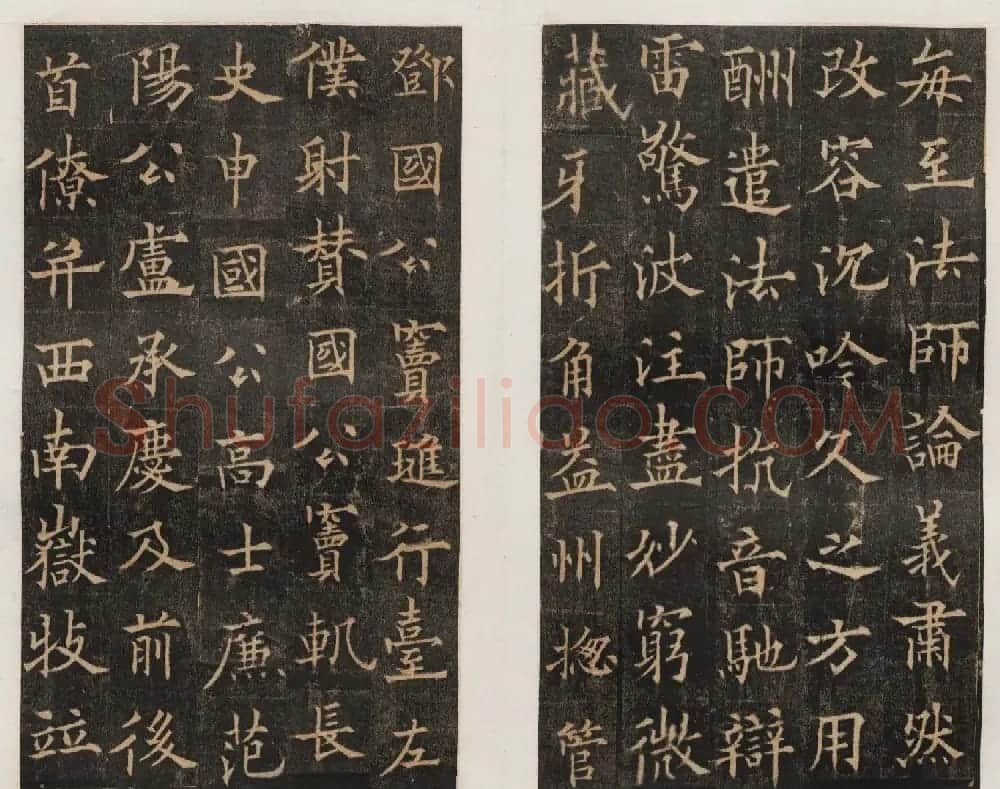 每至法師論義肅然
改容沉吟久之方用
酬遣法師抗音馳辯
雷驚波注盡妙窮微
藏牙折角益州揔管
鄧國公竇璡行臺左
僕射贊國公竇軌長
史申國公高士廉范
陽公盧承慶及前後
首僚并西南嶽牧並
Shufaziliao.COM